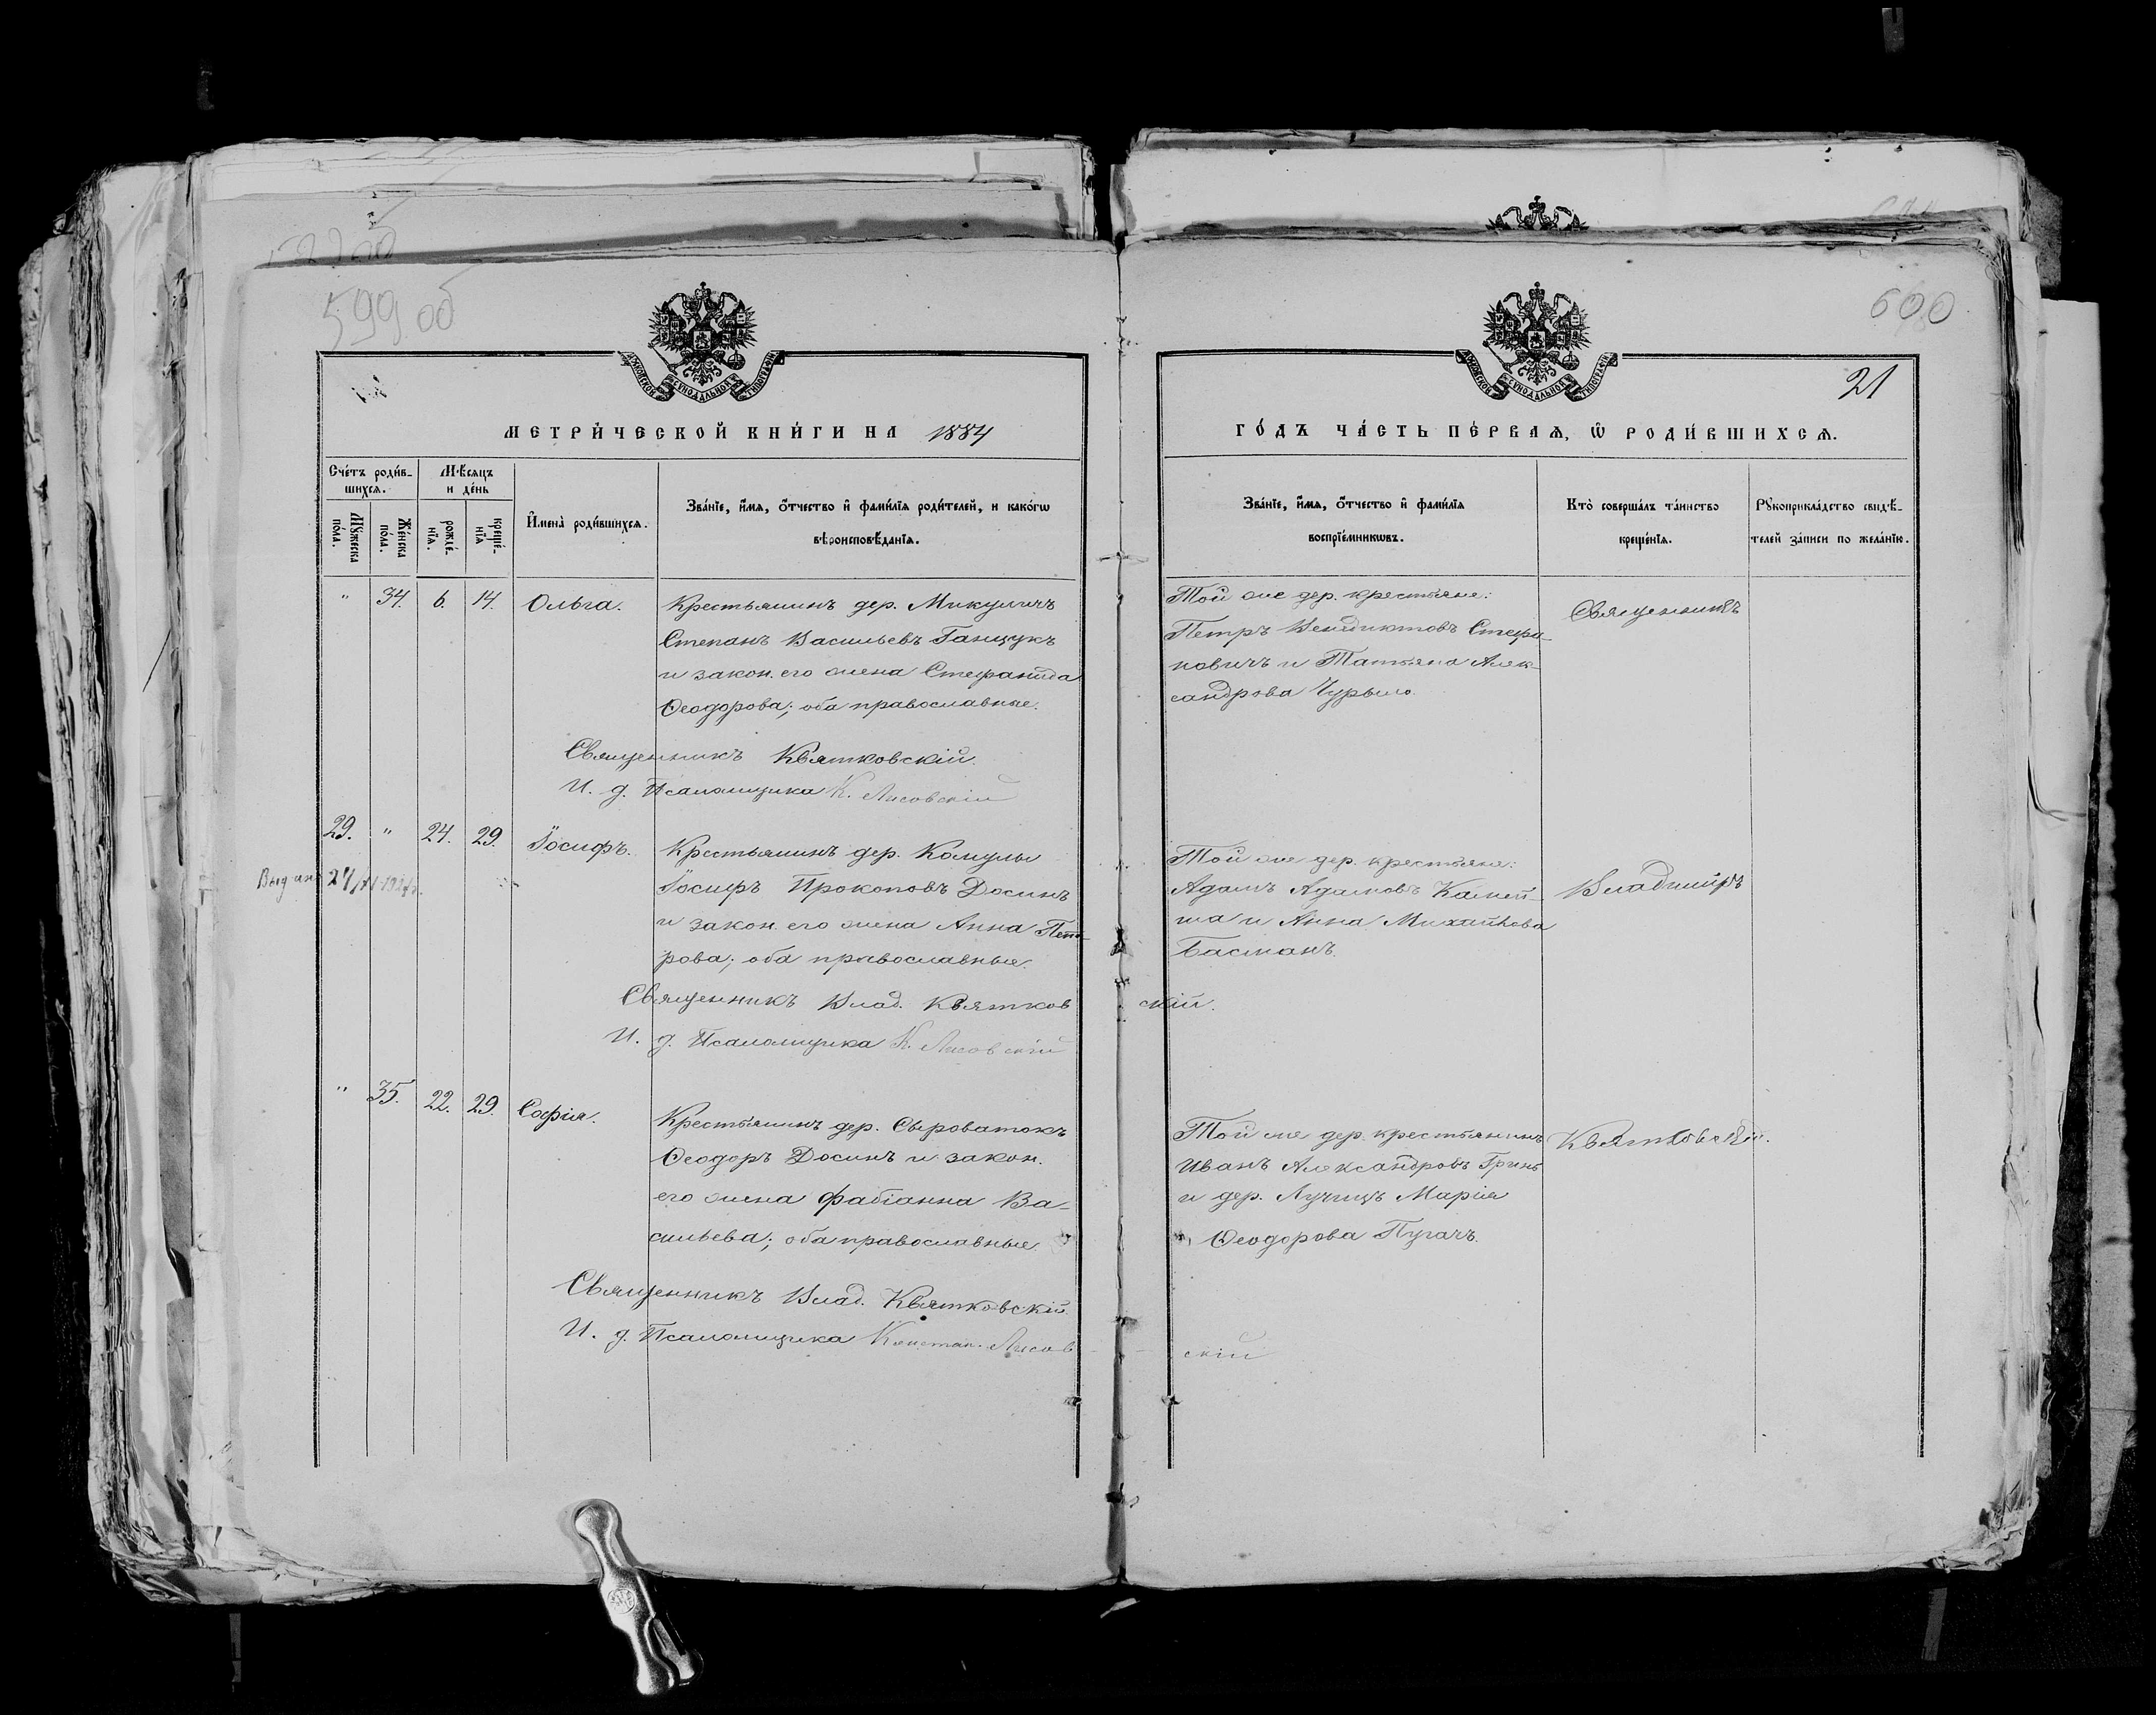 599 об
МЕТРИЧЕСКОЙ КНИГИ НА 1884
Счетъ родив-
шихся.
Мѣсяцъ
и день
Мужеска
пола.
Женска
пола.
рожде-
нія.
креще-
нія
Имена родившихся.
Званіе, имя, отчество и фамилія родителей, и какогѡ
вѣроисповѣданія.
" 34. 6. 14. Ольга.
Крестьянинъ дер. Микуличъ
Степанъ Васильевъ Ганцукъ
и закон. его жена Стефанида
Ѳеодорова; оба православные.
Священникъ Квятковскій.
И. д. Псаломщика К. Лисовскій
29. " 24. 29. Іосифъ.
Выдан 27
Крестьянинъ дер.
Іосифъ Прокоповъ Досинъ
и закон. его жена Анна Пет-
рова; оба православные.
Священникъ Влад. Квятковскій.
И. д. Псаломщика К. Лисовскій
" 35. 22. 29. Софія.
Крестьянинъ дер. Сыроватокъ
Ѳеодоръ Досинъ и закон.
его жена Фабіанна Ва-
сильева; оба православные
Священникъ Влад. Квятковскій
И. д. Псаломщика Констан. Лисовскій
600
21
ГОДЪ ЧАСТЬ ПЕРВАЯ, Ѡ РОДИВШИХСЯ.
Званіе, имя, отчество и фамилія
воспріемникѡвъ.
Кто совершалъ таинство
крещенія.
Рукоприкладство свидѣ-
телей записи по желанію.
Той же дер. крестьяне:
Петръ Венидиктовъ Стефа-
новичъ и Татьяна Алек-
сандрова Чурыло.
Священникъ
Той же дер. крестьяне:
Адамъ Адамовъ Камей-
ша и Анна Михайлова
Басманъ.
Владиміръ
Той же дер. крестьянинъ
Иванъ Александровъ Гринь
и дер. Лучицъ Марія
Ѳеодорова Пугачъ.
Квятковскій.